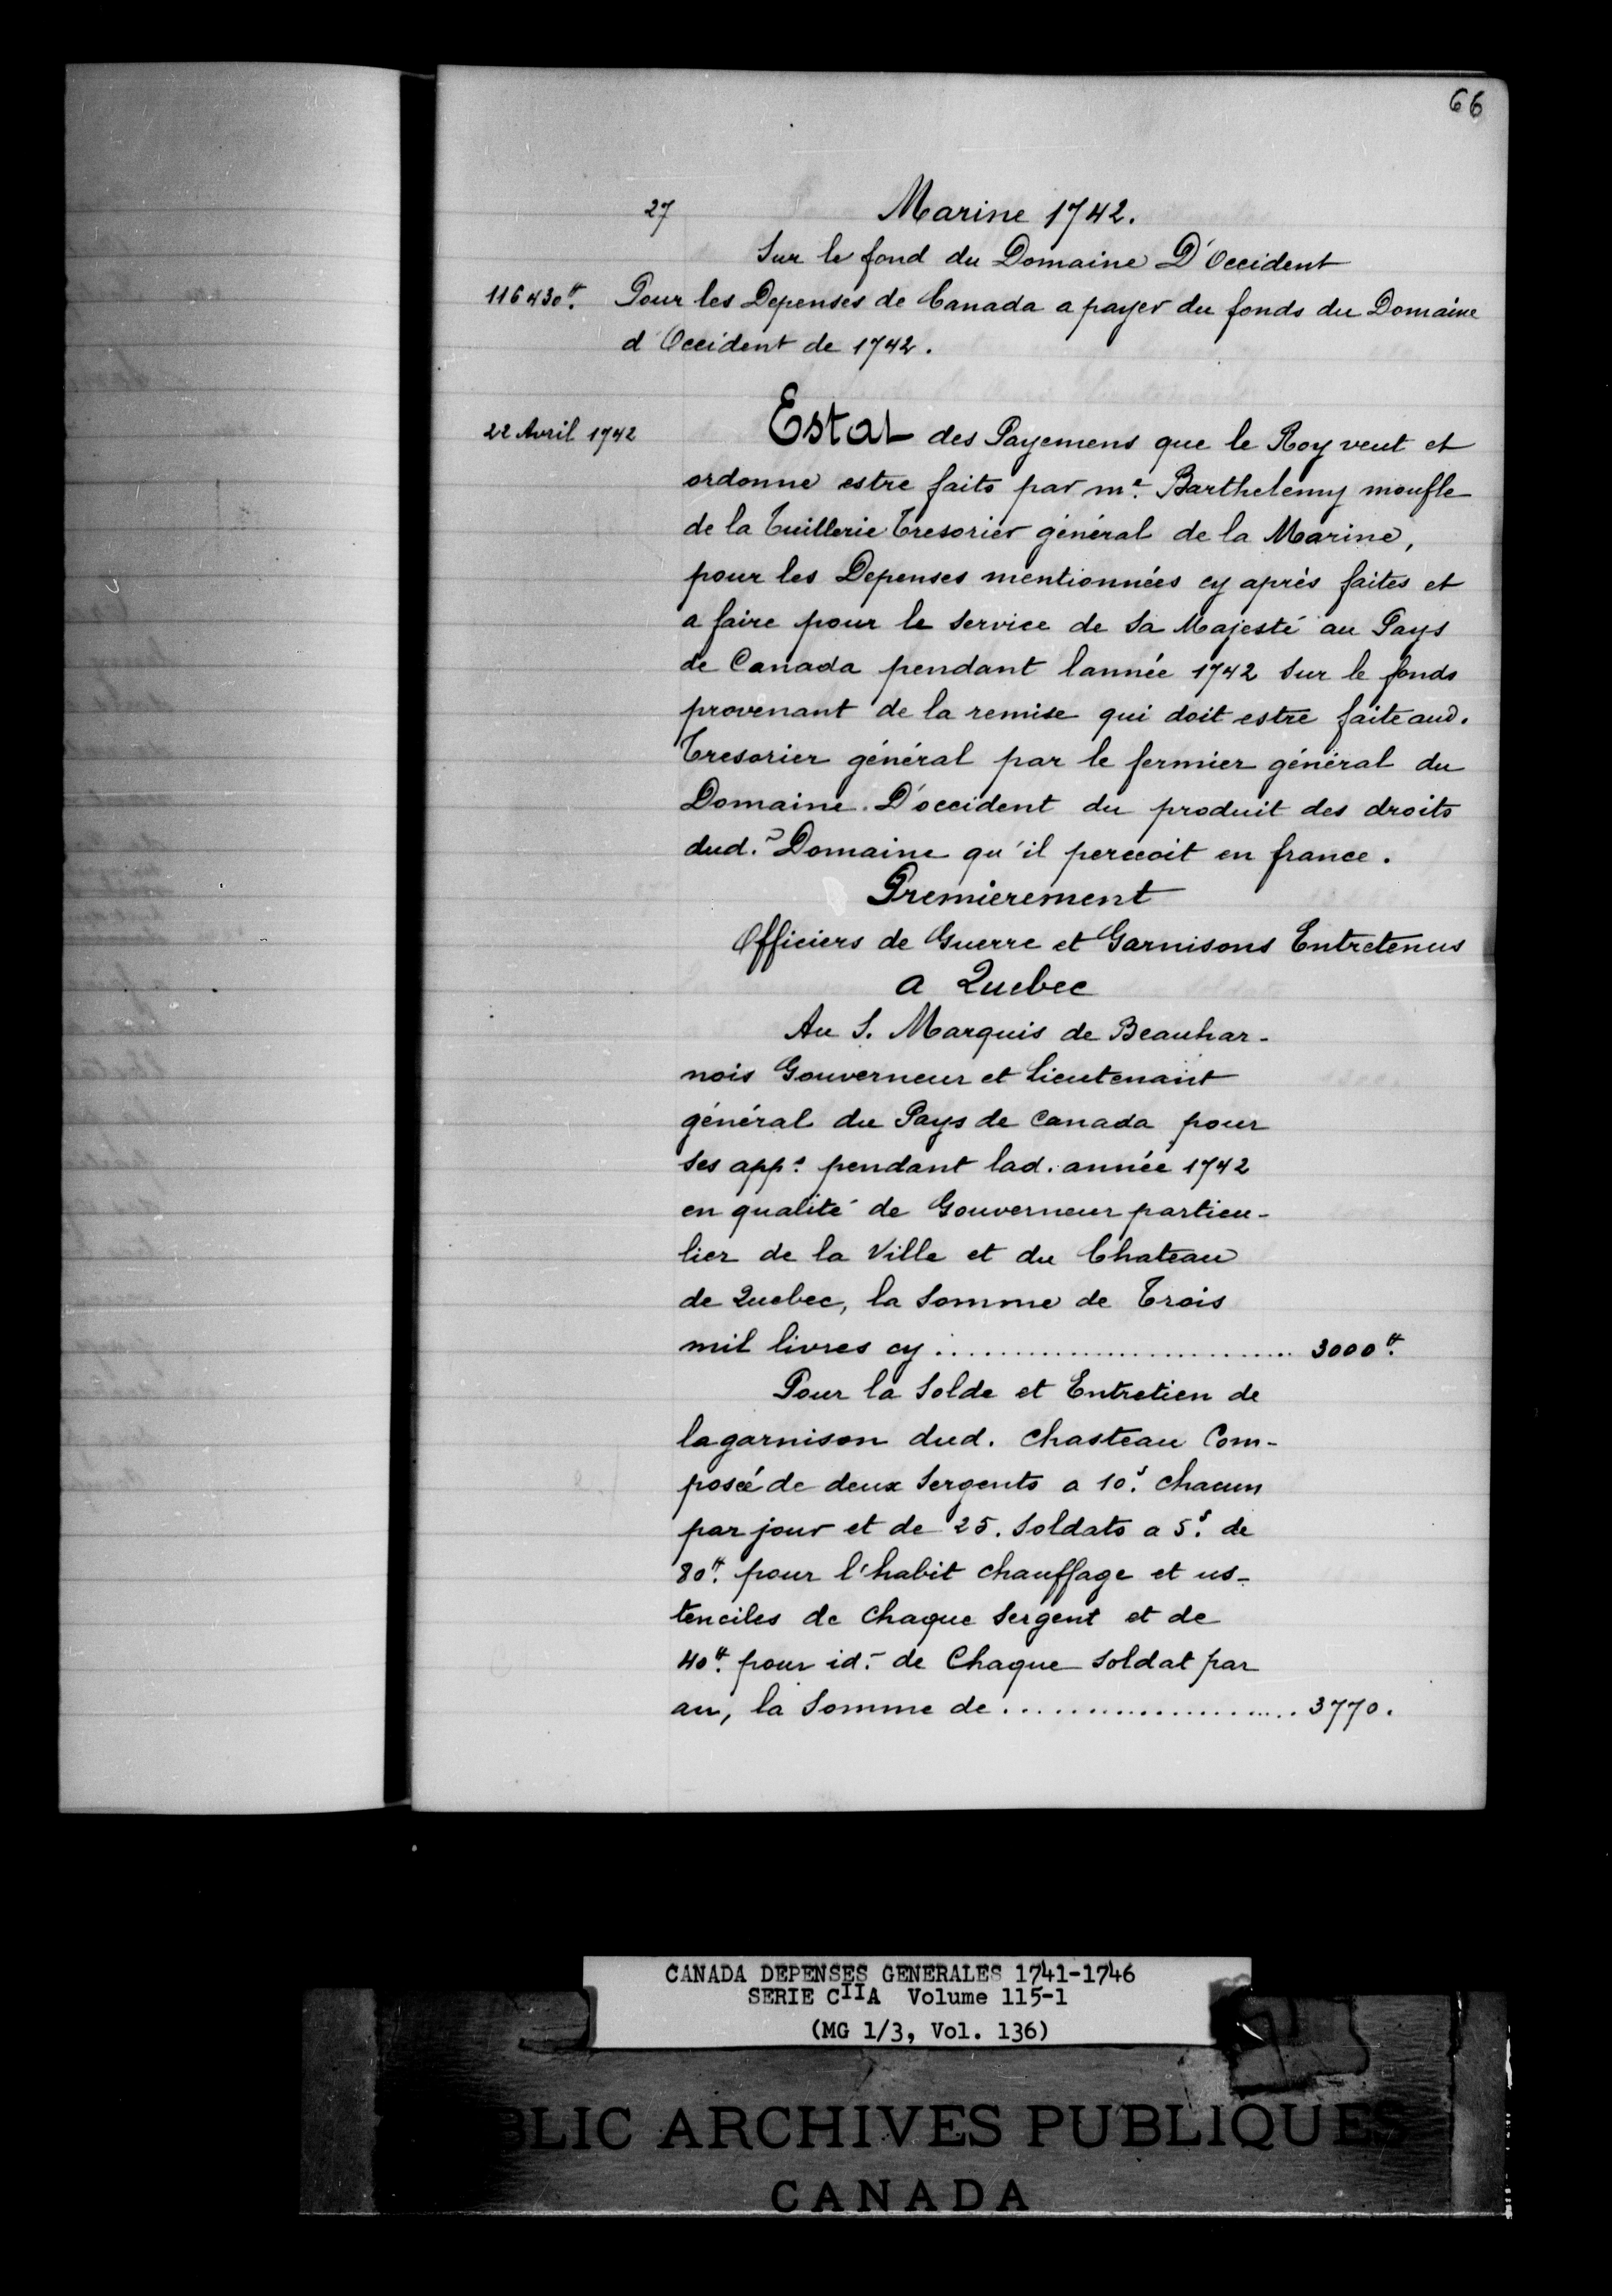 66
27
Marine 1742.
Sur le fond du Domaine D'Occident
116430ᵗᵗ. Pour les Depenses de Canada a payer du fonds du Domaine
d'Occident de 1742.
22 Avril 1742
Estat des Payemens que le Roy veut et
ordonne estre faits par mᵉ. Barthelemy moufle
de la Tuillerie Tresorier général de la Marine,
pour les Depenses mentionnées cy aprés faites et
a faire pour le service de Sa Majesté au Pays
de Canada pendant lannée 1742 sur le fonds
provenant de la remise qui doit estre faite aud.
Tresorier général par le fermier général du
Domaine D'occident du produit des droits
dud. Domaine qu'il percoit en france.
Premierement
Officiers de Guerre et Garnisons Entretenus
a Quebec
Au S. Marquis de Beauhar-
nois Gouverneur et Lieutenant
général du Pays de Canada pour
ses appˢ. pendant lad. année 1742
en qualité de Gouverneur particu-
lier de la Ville et du Chateau
de Quebec, la Somme de Trois
mil livres cy .......................... 3000ᵗᵗ.
Pour la Solde et Entretien de
la garnison dud. Chasteau Com-
posée de deux Sergents a 10ˢ. chacun
par jour et de 25. Soldats a 5ˢ. de
80ᵗᵗ. pour l'habit chauffage et us-
tenciles de chaque Sergent et de
40ᵗᵗ. pour id. de Chaque Soldat par
an, la Somme de ...................... 3770.
CANADA DEPENSES GENERALES 1741-1746
SERIE CIIA Volume 115-1
(MG 1/3, Vol. 136)
BLIC ARCHIVES PUBLIQUES
CANADA